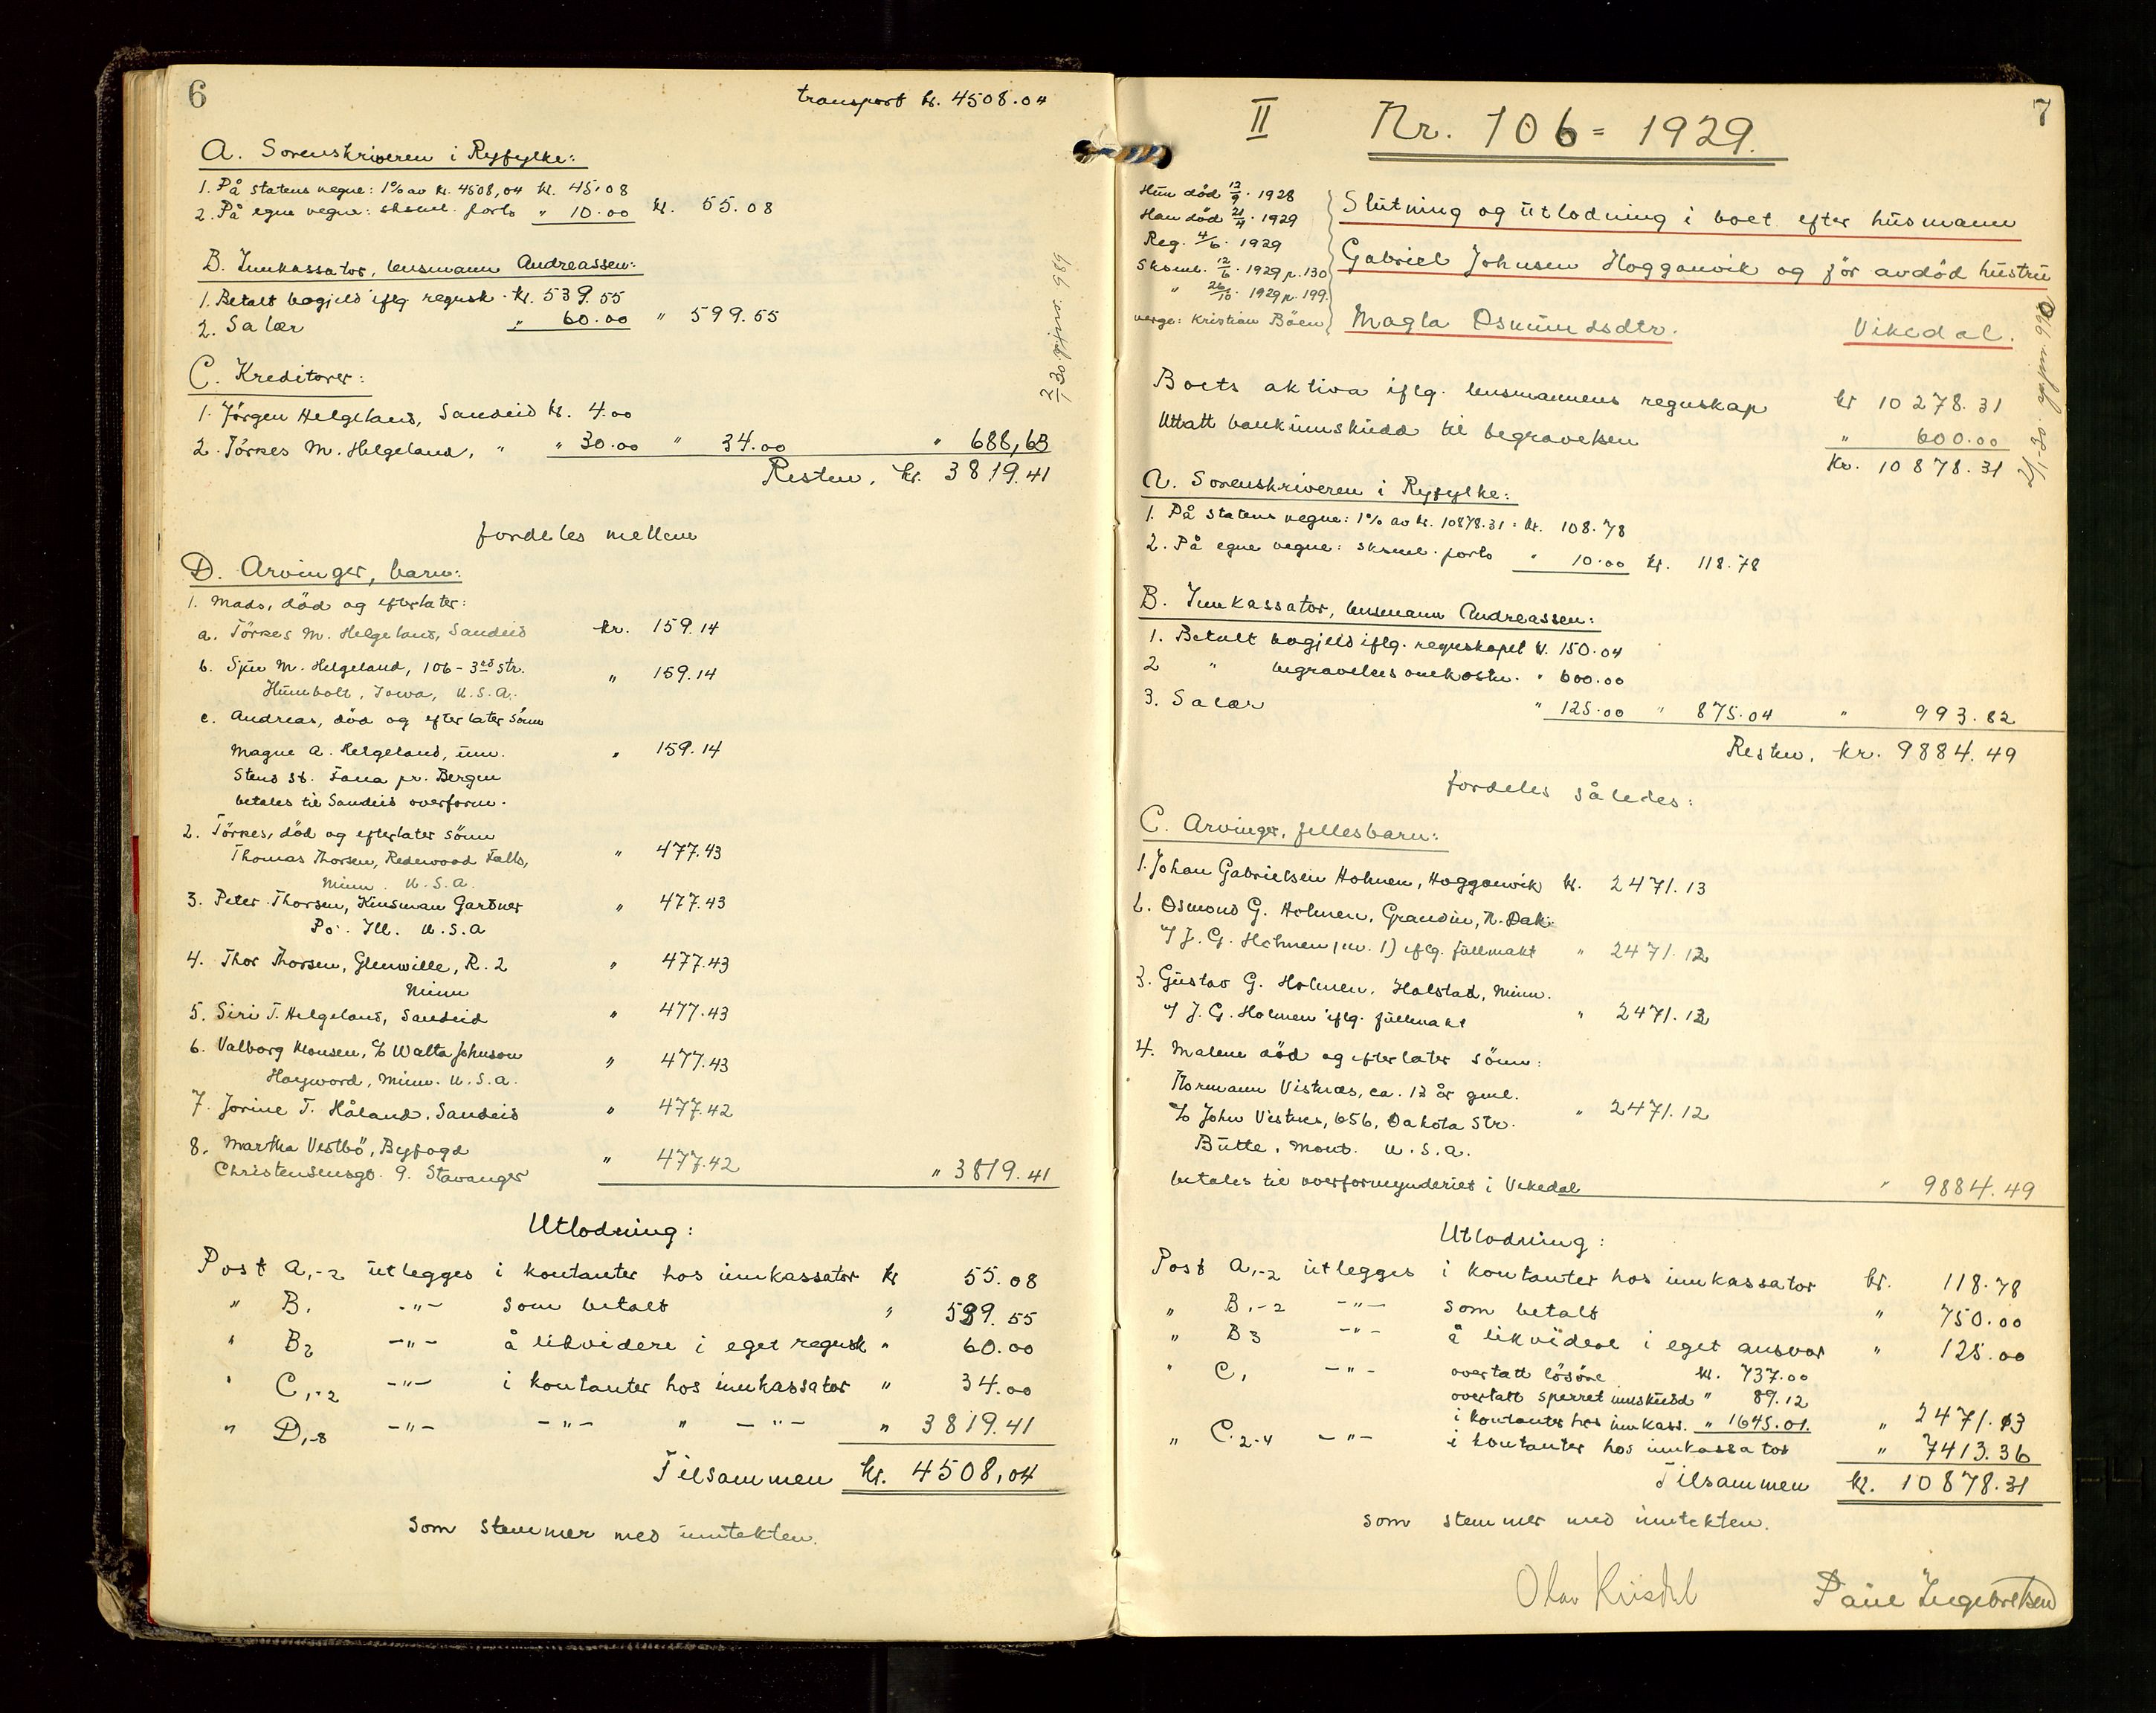 6
transport kr. 4508.04
A. Sorenskriveren i Ryfylke:
1. På statens vegne: 1% av kr. 4508,04 kr. 45.08
2. På egne vegne: sksml. porto " 10.00 kr. 55.08
B. Innkassator, lensmann Andreassen:
1. Betalt bogjeld iflg regnsk. kr. 539.55
2. Salær " 60.00 " 599.55
C. Kreditorer:
1. Jörgen Helgeland, Sandeid kr. 4.00
2. Törres M. Helgeland, " " 30.00 " 34.00 " 688,63
Resten, kr. 3819.41
fordeles mellem
D. Arvinger, barn:
1. Mads, död og efterlater:
a. Törres M. Helgeland, Sandeid kr. 159.14
b. Sjur M. Helgeland, 106 - 3rd Str. " 159.14
Humbolt, Iowa, U.S.A.
c. Andreas, död og efterlater sönn
Magne A. Helgeland, um. " 159.14
Stend st. Fana pr. Bergen
betales til Sandeid overform.
2. Törres, död og efterlater sönn
Thomas Thorsen, Redewood Falls, " 477.43
Minn. U.S.A.
3. Peter Thorsen, Kinsman Gartner " 477.43
Po. Ill. U.S.A
4. Thor Thorsen, Glenwille, R. 2 " 477.43
Minn
5. Siri T. Helgeland, Sandeid " 477.43
6. Valborg Monsen, c/o Walta Johnson " 477.43
Hayword, Minn. U.S.A.
7. Jorine T. Håland, Sandeid " 477.42
8. Martha Vestbö, Byfogd
Christensensgt. 9. Stavanger " 477.42 " 3819.41
Utlodning:
Post A,-2 utlegges i kontanter hos innkassator kr 55.08
" B. -"- som betalt " 539.55
" B2 -"- å likvidere i eget regnsk " 60.00
" C,-2 -"- i kontanter hos innkassator " 34.00
" D,-8 -"- -"- " -"- " 3819.41
Tilsammen kr. 4508,04
som stemmer med inntekten.
2/1 30 gjnr. 989
7
II Nr. 106 = 1929.
Hun död 12/9. 1928
Han död 21/4. 1929
Reg. 4/6. 1929
Sksml. 12/6. 1929 p. 130
" 26/10. 1929 p. 199.
verge: Kristian Böen
Slutning og utlodning i boet efter husmann
Gabriel Johnsen Hogganvik og för avdöd hustru
Magla Osmundsdtr. Vikedal.
2/1-30. gjnr. 990
Boets aktiva iflg. lensmannens regnskap kr 10278.31
Uttatt bankinnskudd til begravelsen " 600.00
Kr. 10878.31
A. Sorenskriveren i Ryfylke:
1. På statens vegne: 1% av kr. 10878.31 = kr. 108.78
2. På egne vegne: sksml. porto " 10.00 kr. 118.78
B. Innkassator, lensmann Andreassen:
1. Betalt bogjeld iflg. regnskapet kr. 150.04
2 " begravelses omkostn. " 600.00
3. Salær " 125.00 " 875.04 " 993.82
Resten, kr. 9884.49
fordeles således:
C. Arvinger, fellesbarn:
1. Johan Gabrielsen Holmen, Hogganvik kr. 2471.13
2. Osmond G. Holmen, Grandin, N. Dak.
v/ J. G. Holmen (nr. 1) iflg. fullmakt " 2471.12
3. Gustav G. Holmen, Halstad, Minn.
v/ J. G. Holmen iflg. fullmakt " 2471.12
4. Malene död og efterlater sönn:
Thormann Vistnæs, ca. 12 år gml.
c/o John Vistnes, 656, Dakota Str. " 2471.12
Butte, Mont. U.S.A.
betales til overformynderiet i Vikedal " 9884.49
Utlodning:
Post A,-2 utlegges i kontanter hos innkassator kr. 118.78
" B,-2 -"- som betalt " 750.00
" B3 -"- å likvidere i eget ansvar " 125.00
" C, -"- overtatt lösöre kr. 737.00
overtatt sperret innskudd " 89.12
i kontanter hos innkass. " 1645.01. " 2471.13
" C.2-4 -"- i kontanter hos innkassator " 7413.36
Tilsammen kr. 10878.31
som stemmer med inntekten.
Paul Ingebretsen